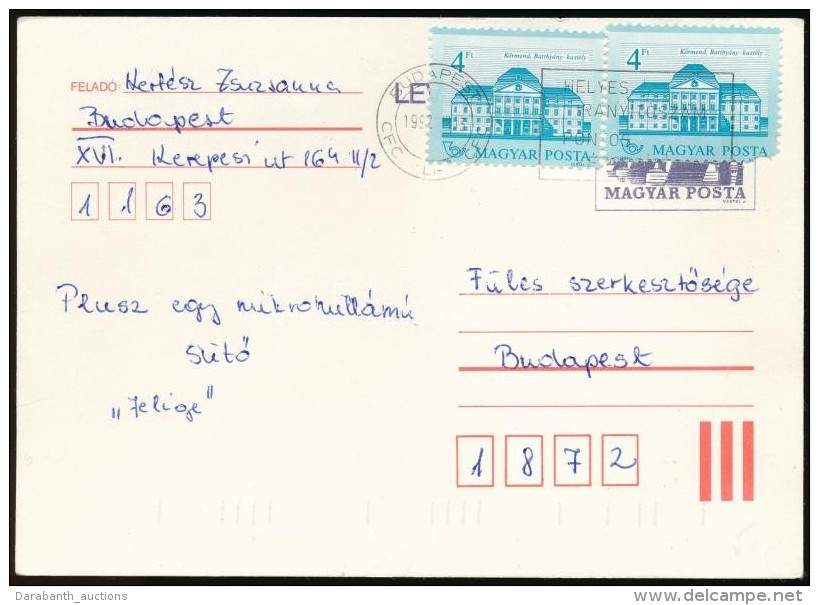 FELADÓ: Kertész Zsuzsanna
Budapest
XVI. Kerepesi út 164 II/2
1163
4 Ft
Körmend, Batthyány-kastély
MAGYAR POSTA
4 Ft
Körmend, Batthyány-kastély
MAGYAR POSTA
BUDAPEST
HELYES
IRÁNYÍTÓSZÁM
PONTOS
MAGYAR POSTA
Plusz egy mikrohullámú
sütő
"Jelige"
Füles szerkesztősége
Budapest
1872
Darabanth_auctions
www.delcampe.net